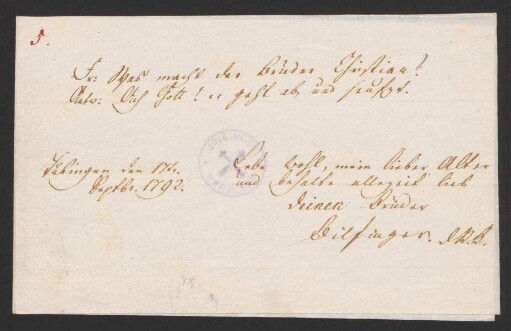 5.
Fr: Was macht der Bruder Christian?
Antw: Ach Gott! er geht ab und seufzt.
Tübingen den 17t.
Septbr. 1792.
Lebe wohl, mein lieber Alter
und behalte allezeit lieb
Deinen Bruder
Bilfinger.